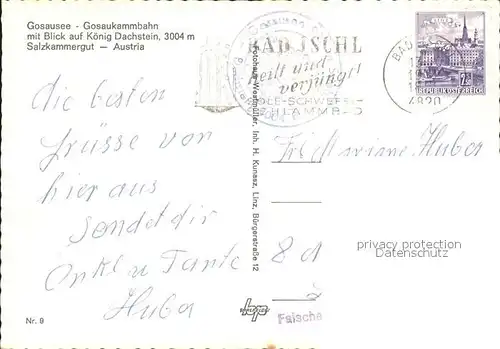 Gosausee - Gosaukammbahn
mit Blick auf König Dachstein, 3004 m
Salzkammergut — Austria
BAD ISCHL
heilt und
verjüngt
SOLE-SCHWEFEL-
SCHLAMMBAD
BAD
4820
REPUBLIK ÖSTERREICH
die besten
Grüsse von
hier aus
sendet dir
Onkel u Tante
Huber
Inh. H. Kunasz, Linz, Bürgerstraße 12
Huber
8 d
privacy protection
Datenschutz
Falsche
Nr. 9